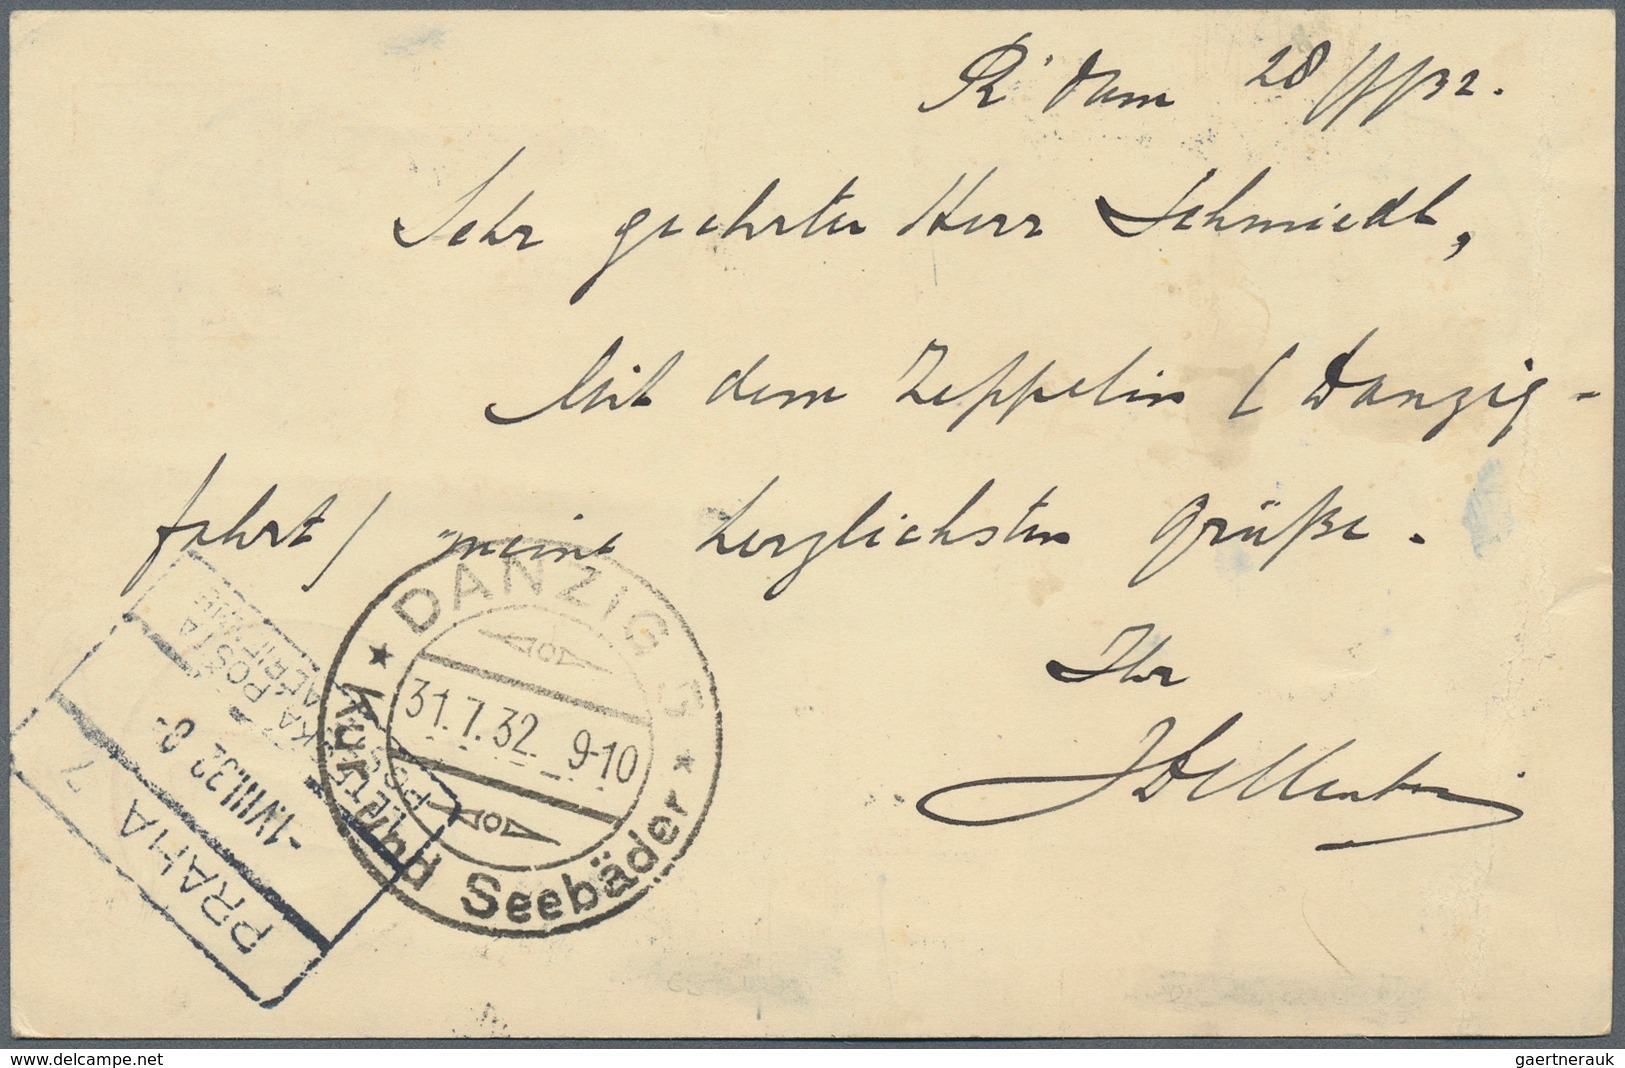 R'dam 28/7/32.
Sehr geehrter Herr Schmiedl,
Mit dem Zeppelin (Danzig-
fahrt) meine herzlichsten Grüße.
Ihr
DANZIG 5
31.7.32. 9-10
* Kur und Seebäder *
PRAHA 7
-1.VIII.32 8-
LETECKÁ POŠTA
delcampe.net
gaertnerauk